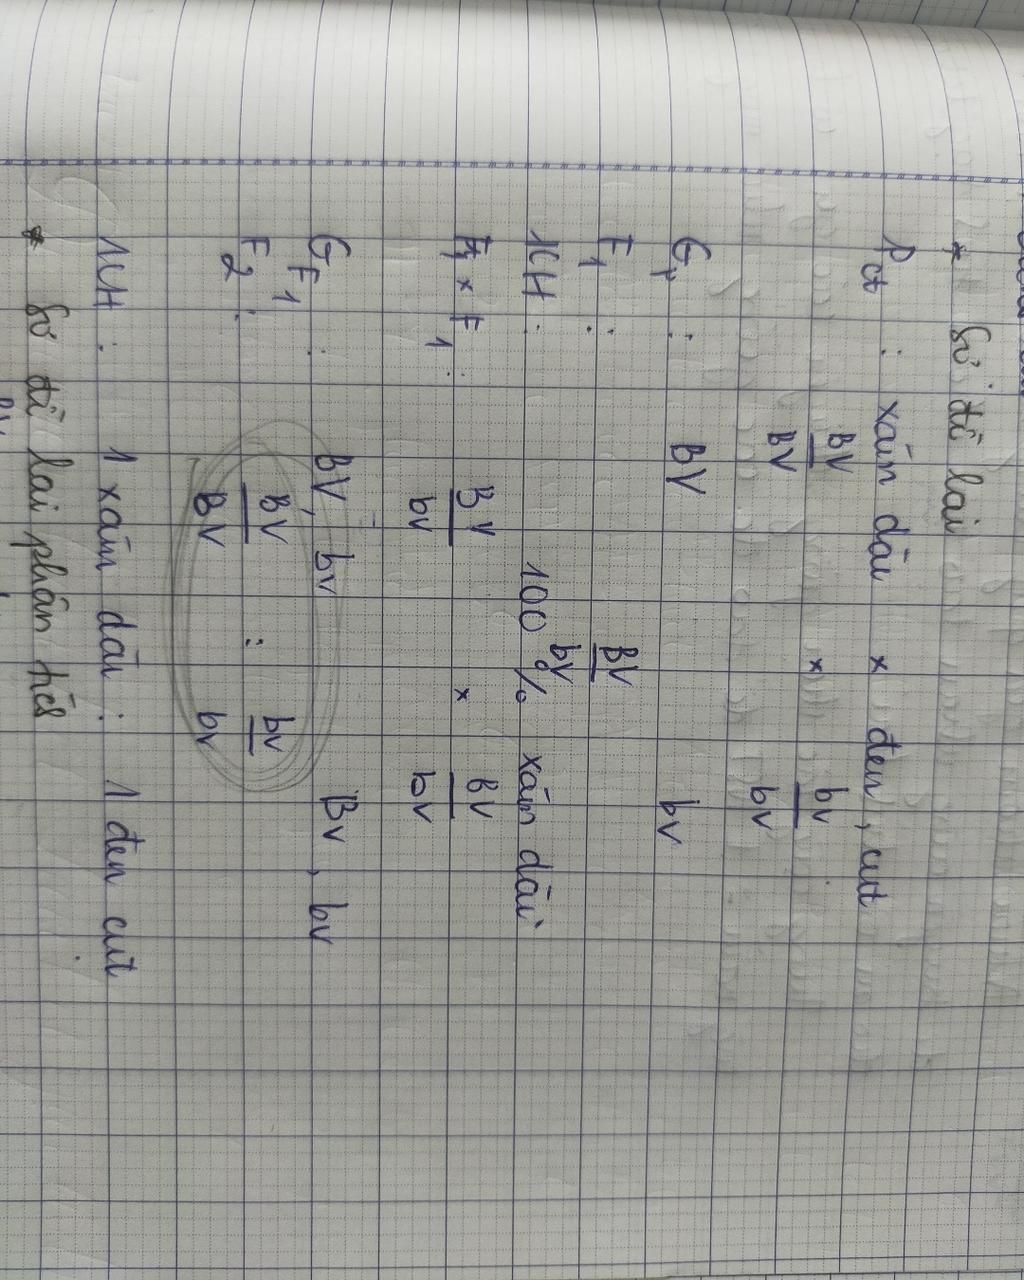 * Sơ đồ lai
Pct : xám dài x đen, cụt
BV x bv
BV bv
Gp : BV bv
F1 : BV
bv
KH : 100% xám dài
F1 x F1 : BV x BV
bv bv
GF1 : BV, bv BV, bv
F2 : BV : bv
BV bv
KH : 1 xám dài : 1 đen cụt
* Sơ đồ lai phân tích